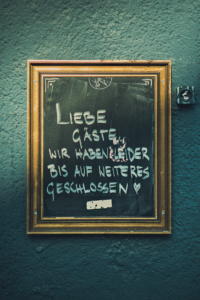 LIEBE
GÄSTE,
WIR HABEN LEIDER
BIS AUF WEITERES
GESCHLOSSEN ♥